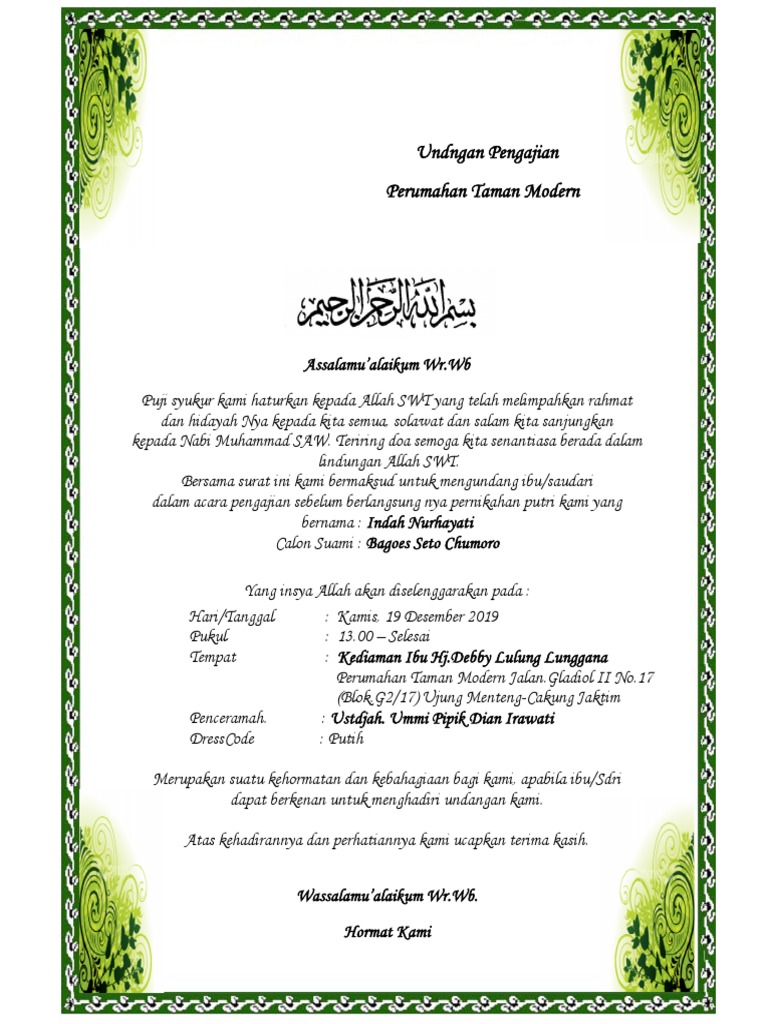 Undngan Pengajian
Perumahan Taman Modern
بسم الله الرحمن الرحيم
Assalamu’alaikum Wr.Wb
Puji syukur kami haturkan kepada Allah SWT yang telah melimpahkan rahmat
dan hidayah Nya kepada kita semua, solawat dan salam kita sanjungkan
kepada Nabi Muhammad SAW. Teriring doa semoga kita senantiasa berada dalam
lindungan Allah SWT.
Bersama surat ini kami bermaksud untuk mengundang ibu/saudari
dalam acara pengajian sebelum berlangsung nya pernikahan putri kami yang
bernama : Indah Nurhayati
Calon Suami : Bagoes Seto Chumoro
Yang insya Allah akan diselenggarakan pada :
Hari/Tanggal : Kamis, 19 Desember 2019
Pukul : 13.00 – Selesai
Tempat : Kediaman Ibu Hj.Debby Lulung Lunggana
Perumahan Taman Modern Jalan.Gladiol II No.17
(Blok G2/17) Ujung Menteng-Cakung Jaktim
Penceramah. : Ustdjah. Ummi Pipik Dian Irawati
DressCode : Putih
Merupakan suatu kehormatan dan kebahagiaan bagi kami, apabila ibu/Sdri
dapat berkenan untuk menghadiri undangan kami.
Atas kehadirannya dan perhatiannya kami ucapkan terima kasih.
Wassalamu’alaikum Wr.Wb.
Hormat Kami